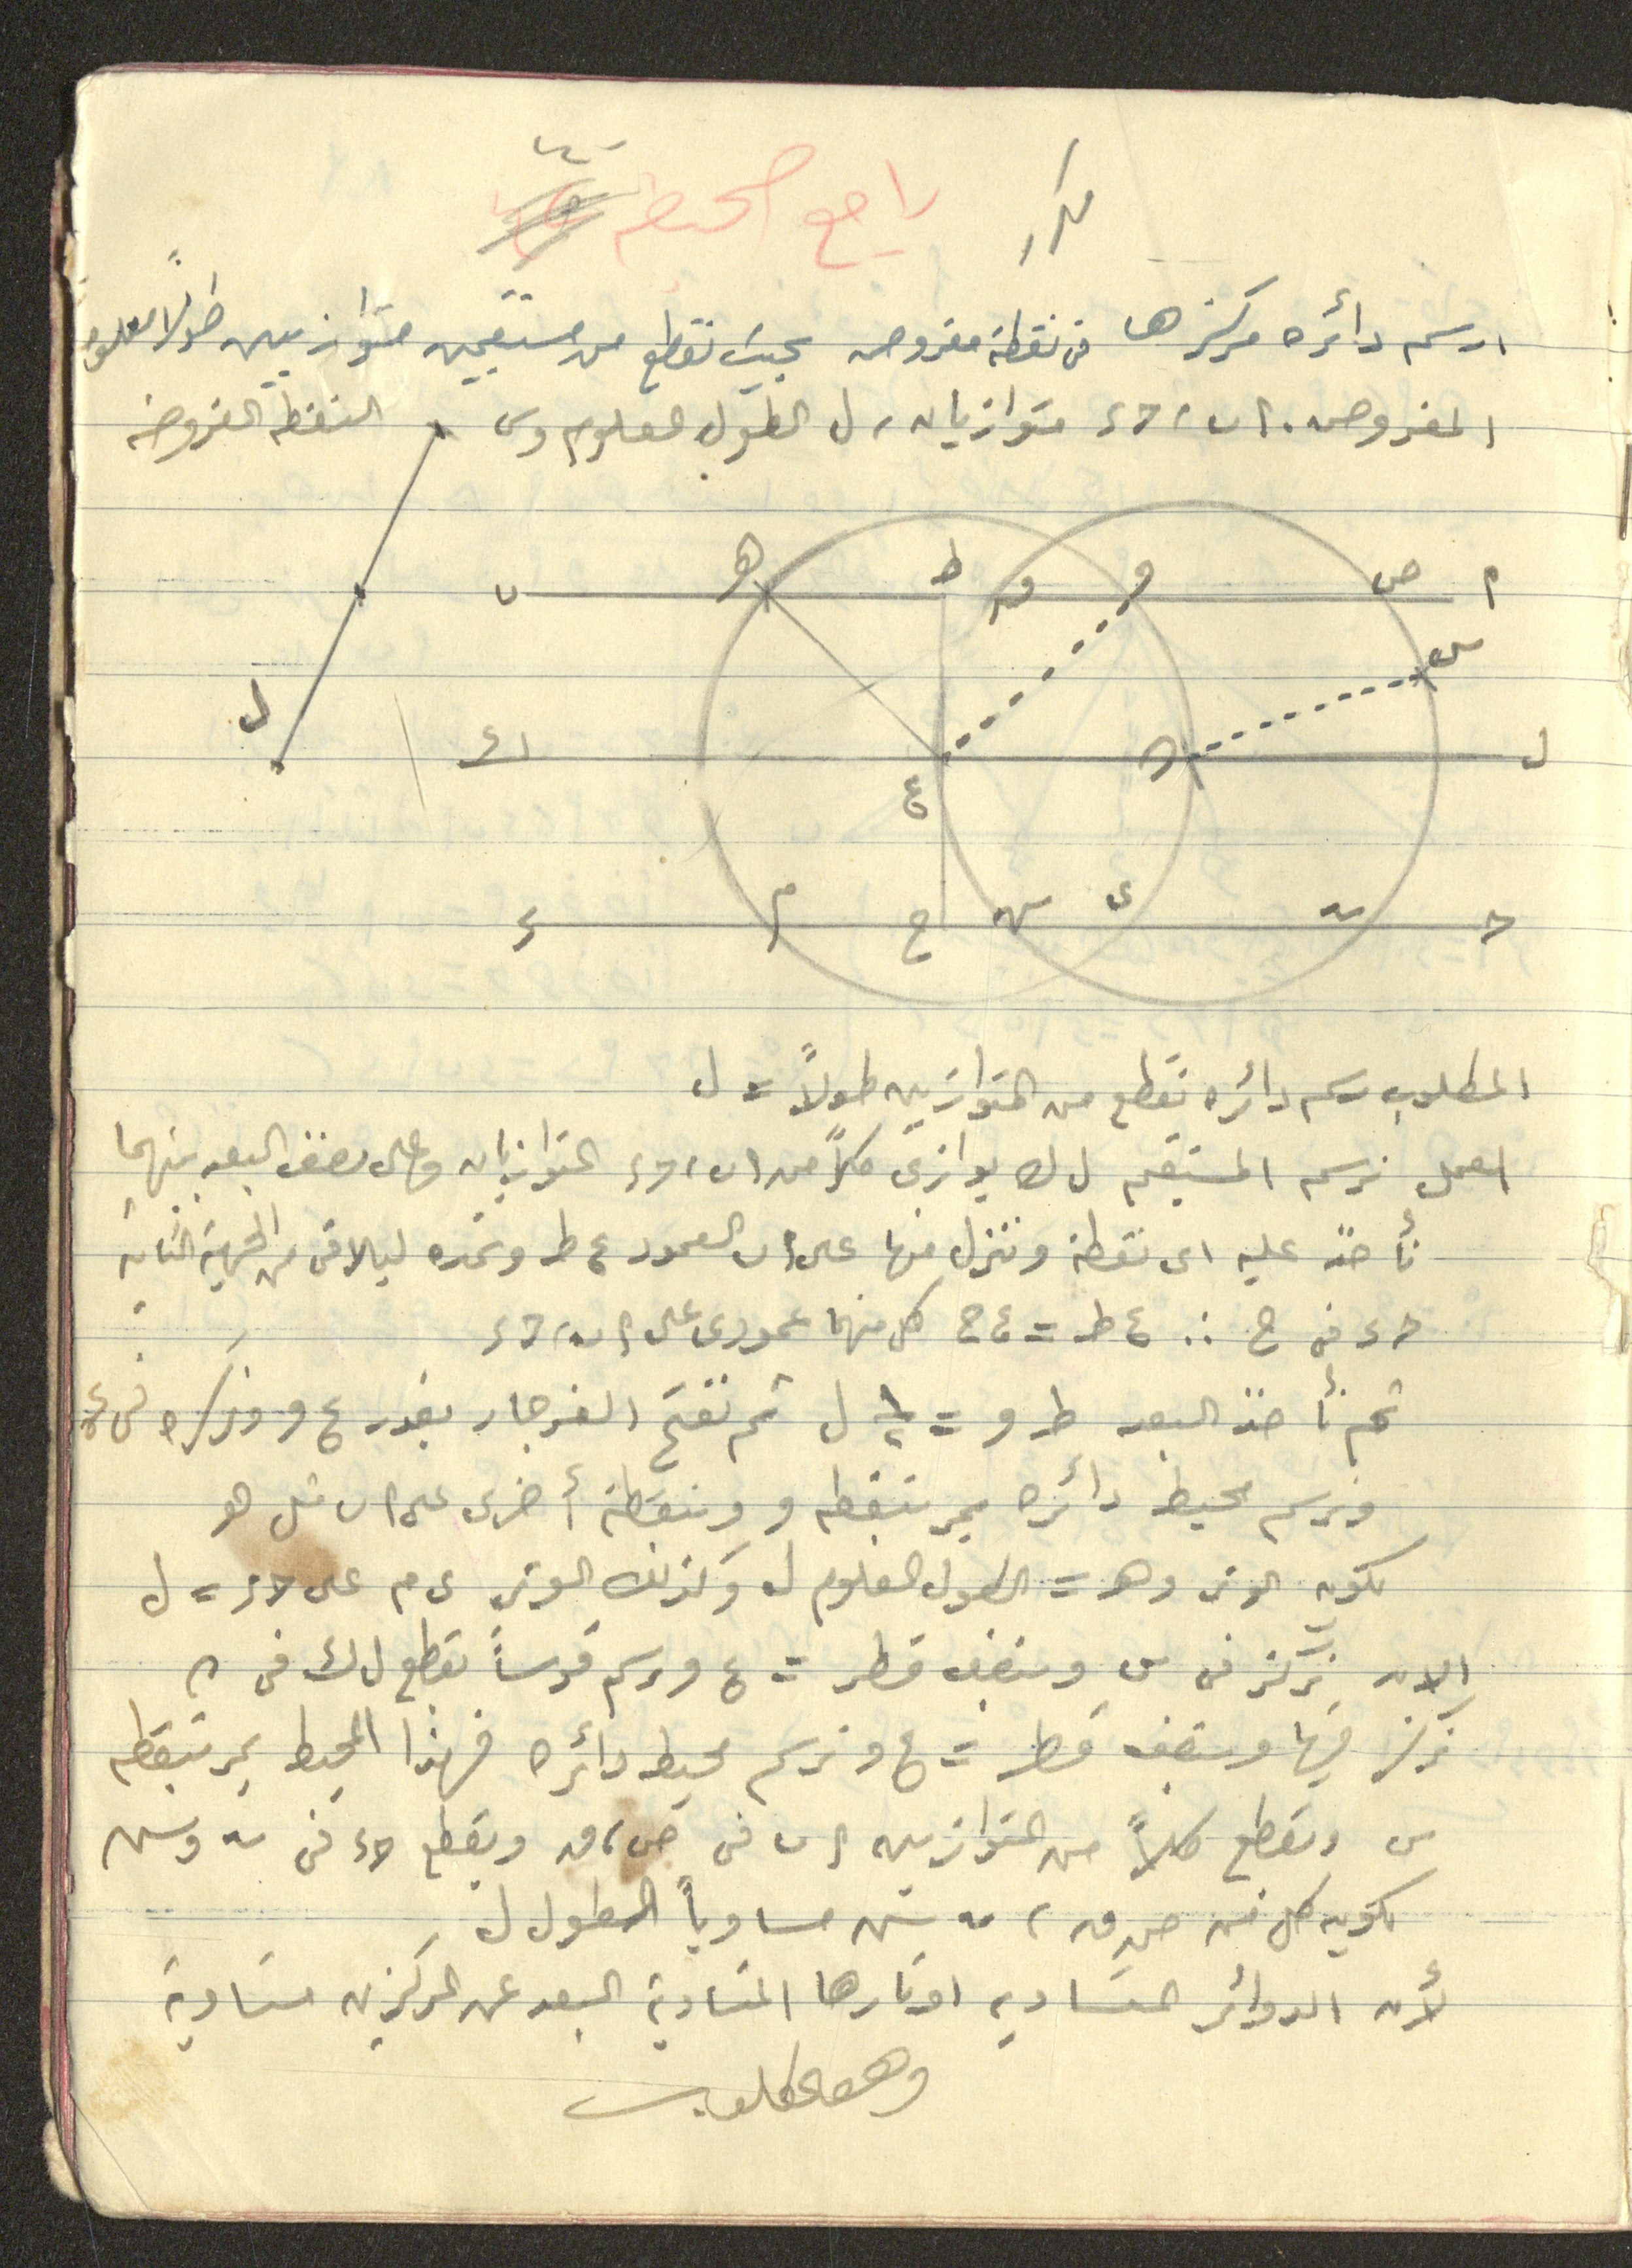 مكرر
راجع
ارسم دائره مركزها فى نقطة مفروضه بحيث تقطع من مستقيمين متوازيين طولاً معلوم
المفروض . ا ب ، حـ ء متوازيان ، ل الطول المعلوم و س النقطة المفروضه
هـ ط ف و ص ا
ب
س
ل
ك ع ن ل
ء م ح ش ى ت حـ
المطلوب رسم دائره تقطع من المتوازيين طولاً = ل
العمل نرسم المستقيم ل ك يوازى كلاً من ا ب ، حـ ء المتوازيان وعلى نصف البعد بينهما
نأخذ عليه اى نقطة وننزل منها على ا ب العمود ع ط ونمده ليلاقى من الجهة الثانية
حـ ء فى ح ∴ ع ط = ع ح كل منهما عمودى على ا ب ، حـ ء
ثم نأخذ البعد ط و = ½ ل ثم نفتح الفرجار بقدر ع و ونركزه فى ع
ونرسم محيط دائره يمر بنقطه و وبنقطة أخرى على ا ب مثل هـ
يكون الوتر و هـ = الطول المعلوم ل وكذلك الوتر ى م على حـ ء = ل
الان نركز فى س وبنصف قطر = ع و ونرسم قوساً يقطع ل ك فى ن
نركز فيها وبنصف قطر = ع و نرسم محيط دائره فهذا المحيط يمر بنقطه
س ويقطع كلاً من المتوازيين ا ب فى ص ، ف ويقطع حـ ء فى ت و ش
يكون كل من ص ف ، ت ش مساوياً للطول ل
لأن الدوائر المتساويه اوتارها المتساوية البعد عن المركزين متساوية
وهو المطلوب